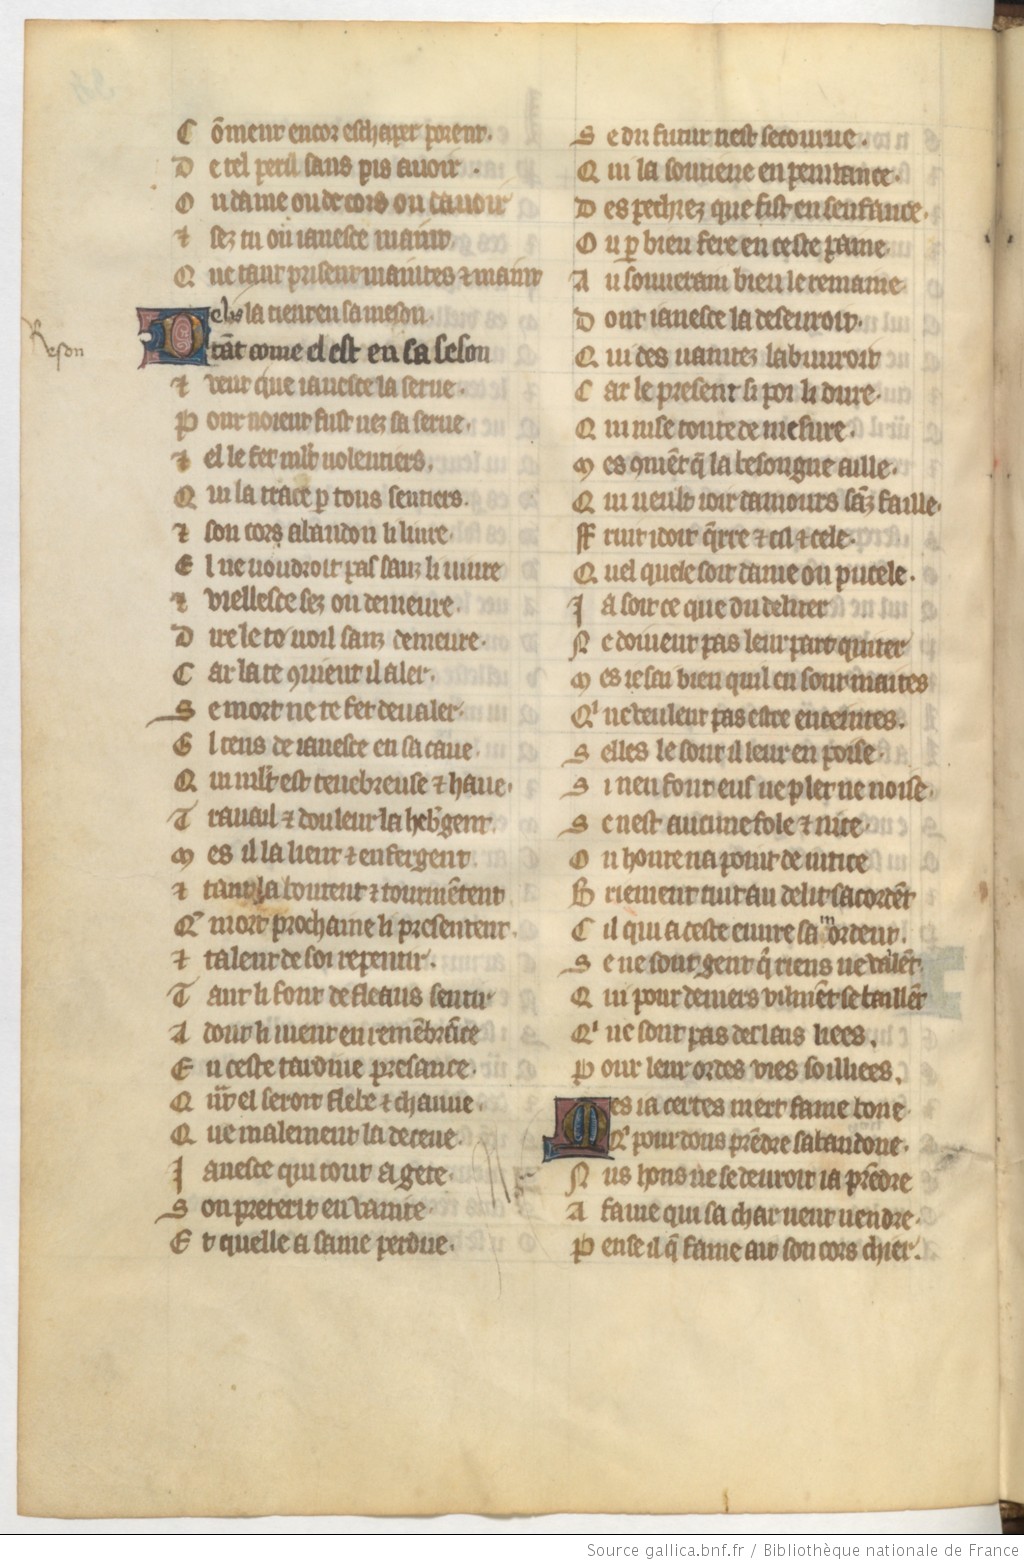 C õment encor eschaper porent.
D e tel peril sans pis avoir.
O u dame ou de cors ou davoir
⁊ sez tu ou ianesce maint.
Q ue tant prisent maintes ⁊ maint
D eliz la tient en sa meson.
tãt come el est en sa seson
⁊ veut que ianesce la serve.
P our noient fust nez sa serve.
⁊ el le fet mlt volentiers.
Q ui la trace p tous sentiers.
⁊ son cors abandon li livre.
E l ne voudroit pas sanz li vivre
⁊ viellesce sez ou demeure.
D ire le te voil sanz demeure.
C ar la te 9vient il aler.
S e mort ne te fet devaler.
El tens de ianesce en sa cave.
Q ui mlt est tenebreuse ⁊ have.
T ravail ⁊ douleur la hebgent.
M es il la lient ⁊ enfergent.
⁊ tant la batent ⁊ tourmẽtent
Q' mort prochaine li presentent.
⁊ talent de soi repentir.
T ant li font de fleaus sentir
A dont li vient en remẽbrãce
E n ceste tardive presance.
Q ũt el seroit flebe ⁊ chanue.
Q ue malement la deceue.
J anesce qui tout a gete.
S on preterit en vanite.
E t quelle a same perdue.
Reson
S e du futur nest secourue.
Q ui la soutiene en penitance.
D es pechiez que fist en senfance.
O u p bien fere en ceste paine
A u souverain bien le remaine
D ont ianesce la desevroit.
Q ui des vanitez labuvroit
C ar le present si poi li dure.
Q ui nise conte de mesure.
M es 9mẽt q̃ la besongne aille.
Q ui veult ioir damours sãz faille.
FF ruit idoit q̃rre ⁊ cil ⁊ cele.
Q uel quele soit dame ou pucele.
J a soit ce que du deliter
N e doivent pas leur part quiter
M es ie sai bien quil en sont maites
Q' ne veulent pas estre enceintes.
S elles le sont il leur en poise.
S i nen font eus ne plet ne noise.
S e nest aucune fole ⁊ nice.
O u honte na point de iutice
B riement tuit au delit sacordẽt
C il qui a ceste euvre samordent.
S e ne sont gent q̃ riens ne valẽt
Q ui pour deniers vilmẽt se baillẽt
Q' ne sont pas des lais liees.
P our leur ordes vies soilliees.
M es ia certes niert fame bone.
Q' pour dons prẽdre sabandone.
N us hons ne se devroit ia prẽdre
A fame qui sa char veut vendre.
P ense il q̃ fame ait son cors chier.
Source gallica.bnf.fr / Bibliothèque nationale de France